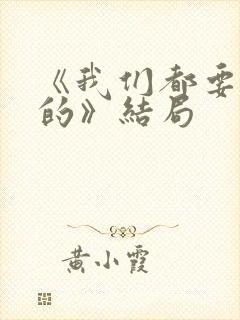 《我们都要
的》结局
黄小霞